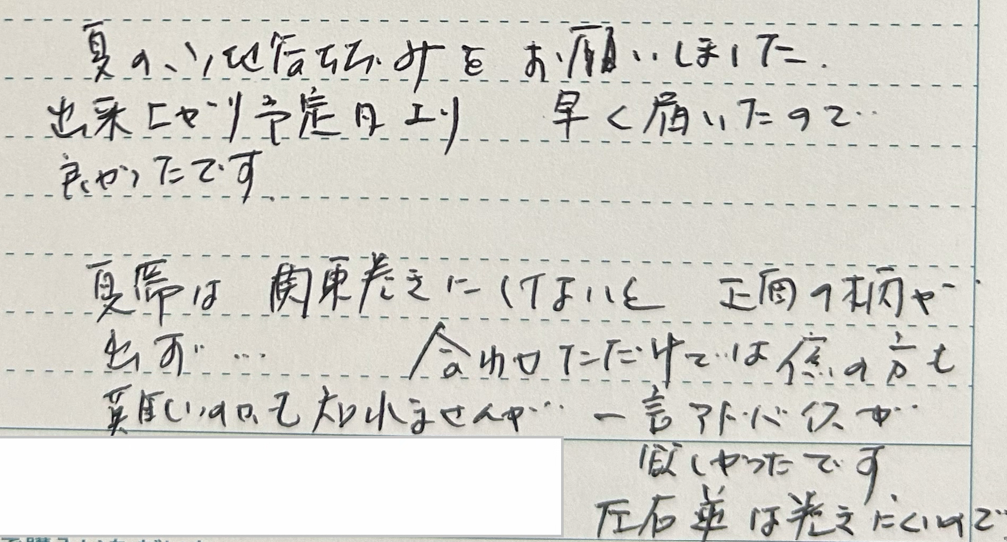 夏の お願いしました.
出来上がり予定日より 早く届いたので
良かったです.
夏帯は 関東巻きにしないと 正面の柄が
出ず… 合わせただけでは 係の方も
難しいのかも知れませんが… 一言アドバイスが
欲しかったです
左右逆は巻きにくいので